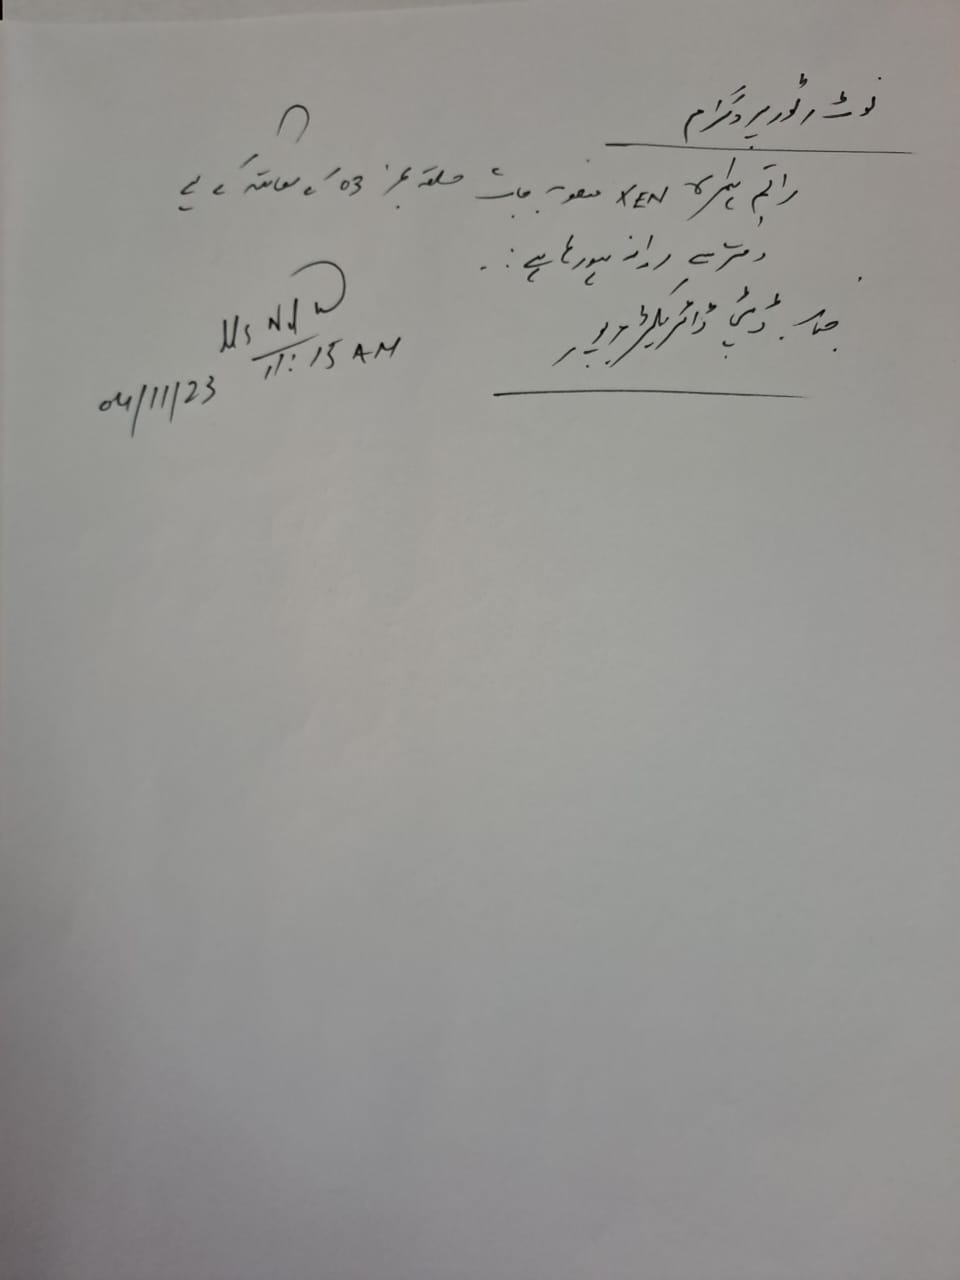 نوٹ ٹور پروگرام
راقم ہمراہ XEN منصوبہ جات حلقہ نمبر 03 کے معائنہ کے لیے
دفتر سے روانہ ہو رہا ہے :۔
جناب ڈپٹی ڈائریکٹر
11:15 AM
04/11/23